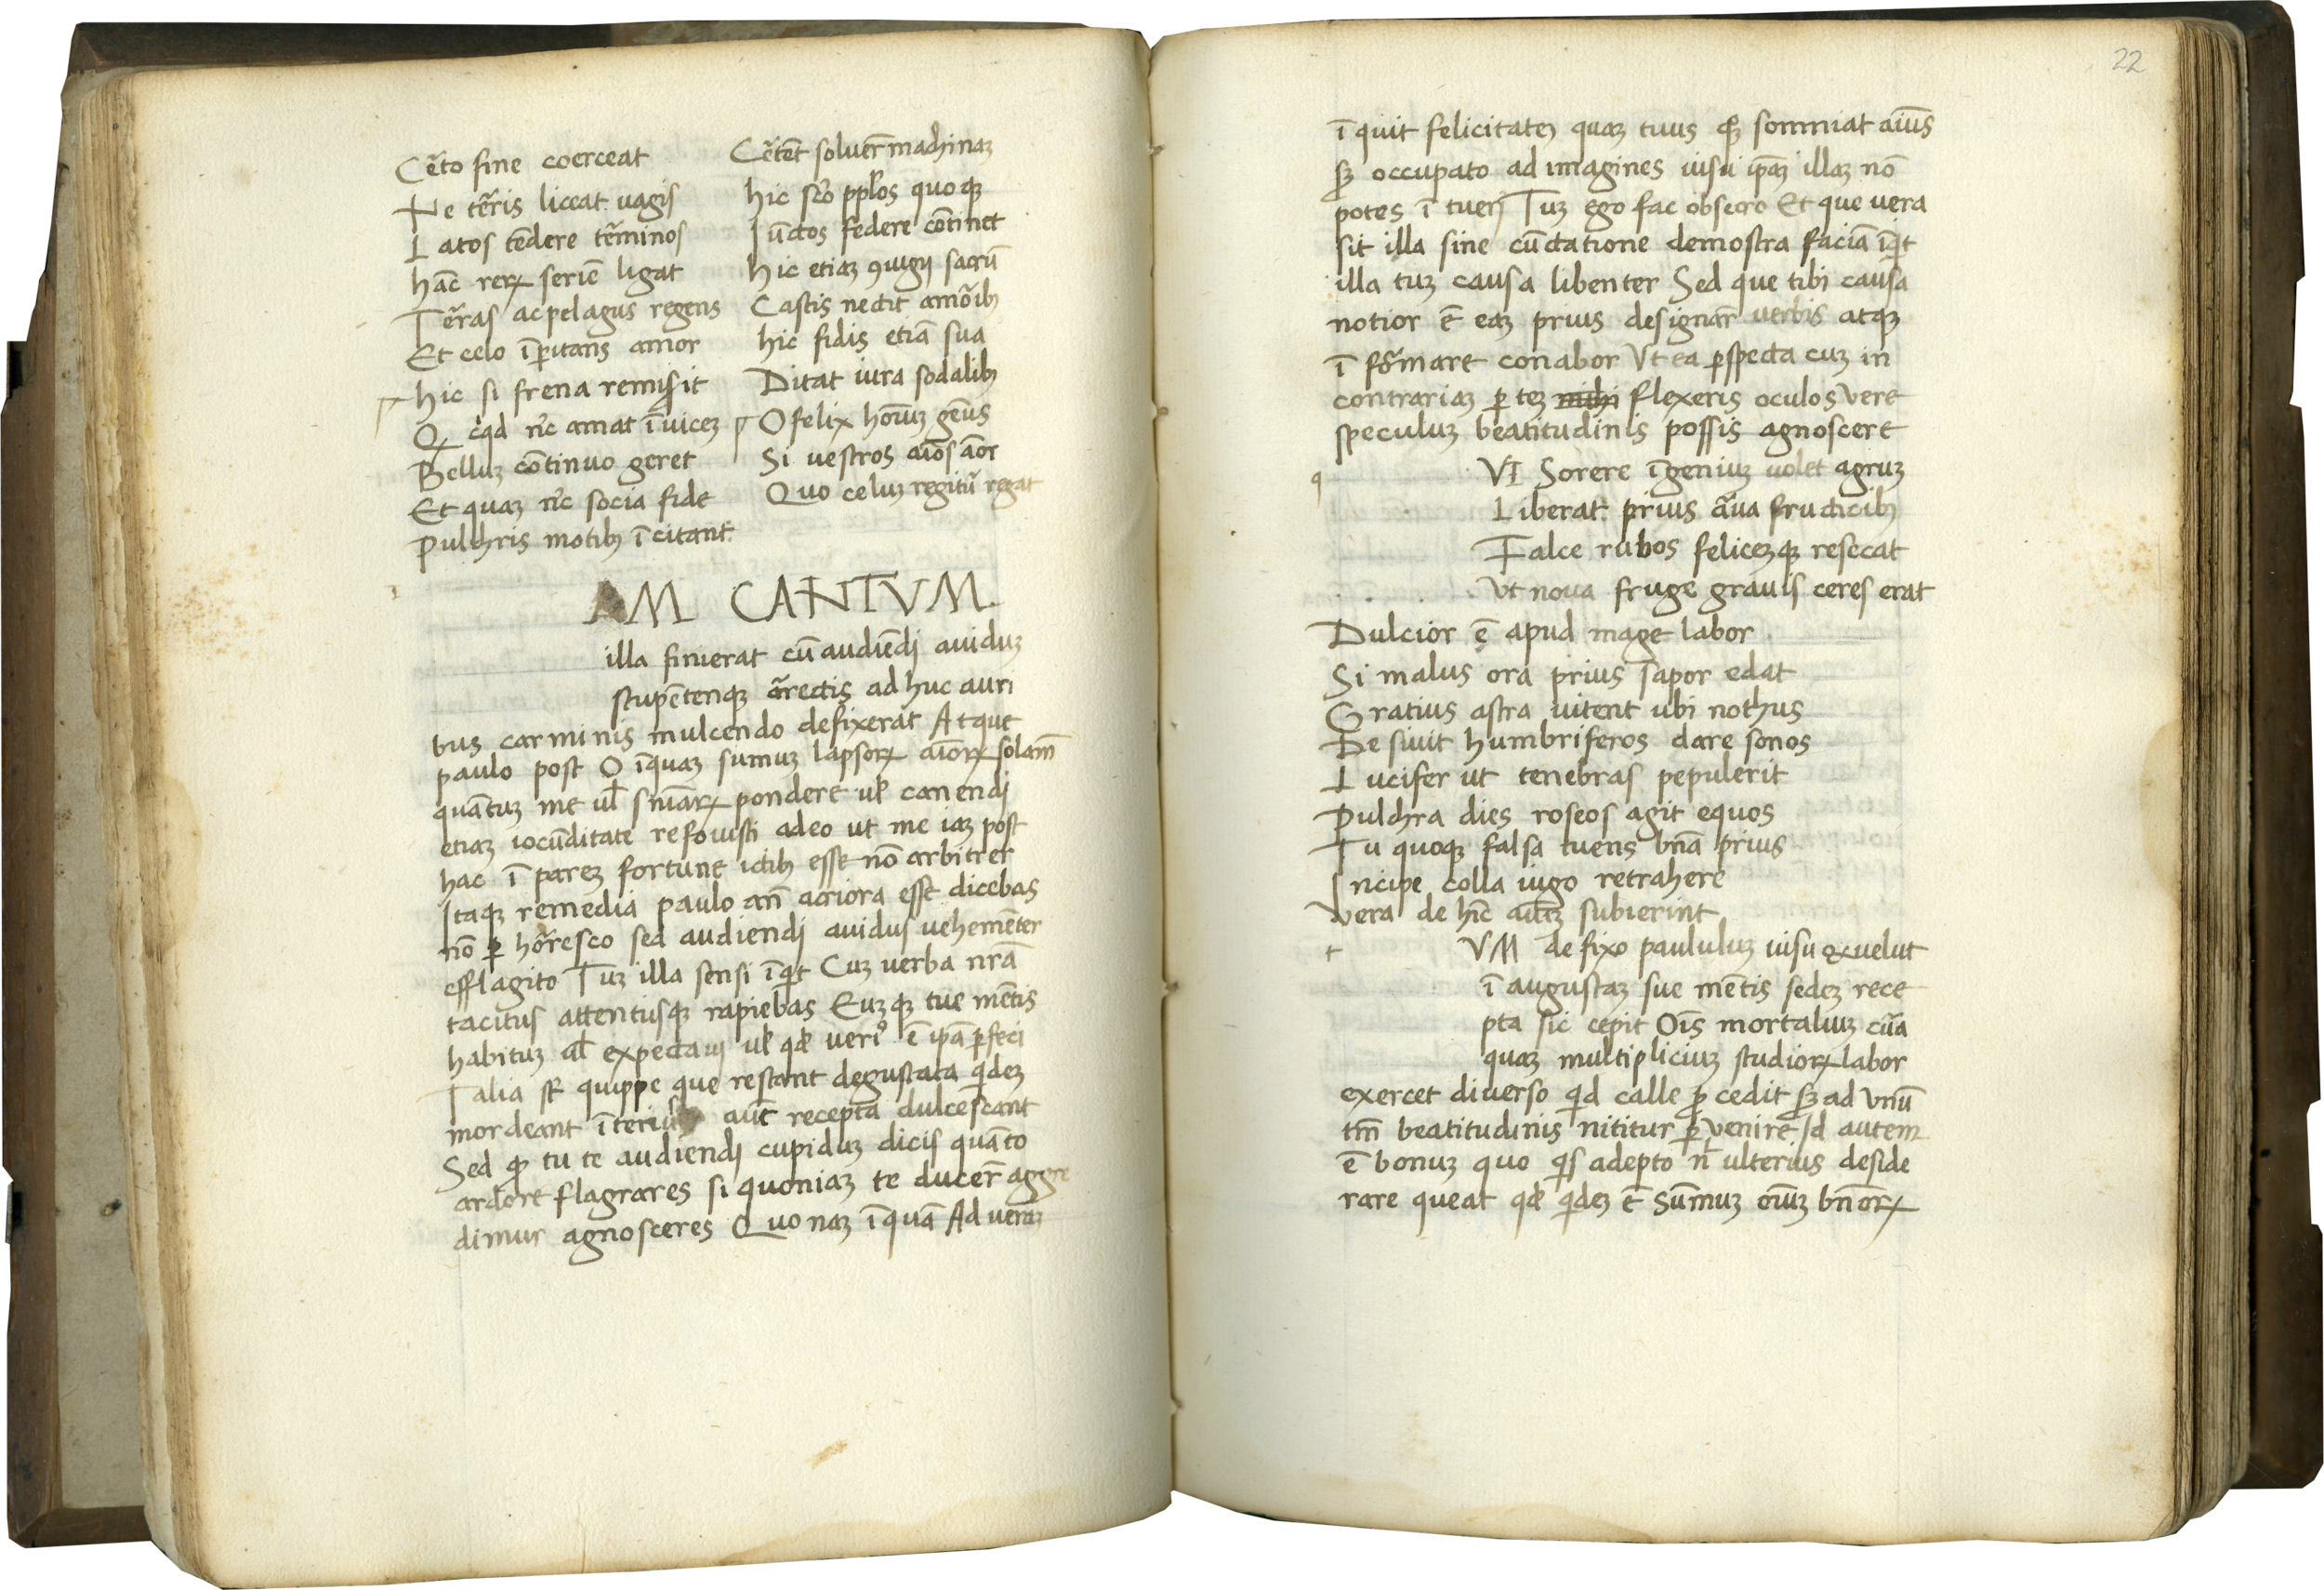 Cẽto fine coerceat
Ne tẽris liceat uagis
Latos tẽdere tẽminos
hãc reꝝ seriẽ ligat
Tẽras ac pelagus regens
Et celo ĩpitans amor
hic si frena remisſit
Q cqd nc̃ amat ĩuiceʒ
Belluʒ cõtinuo geret
Et quaʒ nc̃ socia fide
Pulchris motibꝫ ĩcitant
Cẽtẽt soluer̃ machinaʒ
hic sc̃o ppl̃os quoqꝫ
Iũctos federe cõtinet
hic etiaʒ ꝯiugij sacrũ
Castis nectit amõibꝫ
hic fidis etiã sua
Dictat iura sodalibꝫ
O felix hoĩuʒ gẽus
Si uestros aĩos ãor
Quo celuʒ regitũ regat
AM CANTVM.
illa finierat cũ audiẽdi auiduʒ
stupẽtenqꝫ ãrectis ad huc auri
bus carminis mulcendo defixerat Atque
paulo post O ĩquaʒ sumuʒ lapsoꝝ aĩoꝝ solam̃
quãtuʒ me ul̃ sñiaꝝ pondere ul̃ canendi
etiaʒ iocũditate refouisti adeo ut me iaʒ post
hac ĩ pareʒ fortune ictibꝫ esse nõ arbitrer
Itaqꝫ remedia paulo añ acriora esse dicebas
nõ ꝑ hõresco sed audiendi auidus uehemẽter
efflagito Tuʒ illa sensi ĩqͥt Cuʒ uerba nrã
tacitus attentusqꝫ rapiebas Euʒqꝫ tue mẽtis
habituʒ ul̃ expectaui ul̃ qd̃ ueriꝰ ẽ ipã ꝑfeci
Talia st̃ quippe que restant degustata qͥdeʒ
mordeant ĩteriu aũt recepta dulcescant
Sed ꝙ tu te audiendi cupiduʒ dicis quãto
ardore flagrares si quoniaʒ te ducer̃ aggre
dimur agnosceres Quo naʒ ĩquã Ad ueraʒ
22
ĩquit felicitateʒ quaʒ tuus qꝫ somniat aĩus
sʒ occupato ad imagines uisu ip̃aʒ illaʒ nõ
potes ĩ tueri Tuʒ ego fac obsecro Et que uera
sit illa sine cũctatione demostra faciã ĩqͥt
illa tuʒ causa libenter Sed que tibi causa
notior ẽ eaʒ prius designar̃ uerbis atqꝫ
ĩ fõmare conabor Vt ea ꝑspecta cuʒ in
contrariaʒ ꝑteʒ nichi flexeris oculos vere
speculuʒ beatitudinis possis agnoscere
q
VI Sorere ĩgeniuʒ uolet agruʒ
Liberat prius ãua fructicibꝫ
Falce rubos feliceʒqꝫ resecat
Vt noua fruge grauis ceres erat
Dulcior ẽ apud mage labor
Si malus ora prius sapor edat
Gratius astra uitent ubi nothus
Desiuit humbriferos dare sonos
Lucifer ut tenebras pepulerit
Pulchra dies roseos agit equos
Tu quoqꝫ falsa tuens bñã prius
Incipe colla iugo retrahere
Vera de hĩc aĩuʒ subierint
t
VM defixo paululuʒ uisu & uelut
ĩ augustaʒ sue mẽtis sedeʒ rece
pta sic cepit Oĩs mortaliuʒ cũa
quaʒ multipliciuʒ studioꝝ labor
exercet diuerso qͥd calle ꝓcedit sʒ ad Vnũ
tm̃ beatitudinis nititur ꝑvenire Id autem
ẽ bonuʒ quo qͥs adepto ñ ulterius deside
rare queat qd̃ qͥdeʒ ẽ sũmuʒ oĩuʒ bñoꝝ